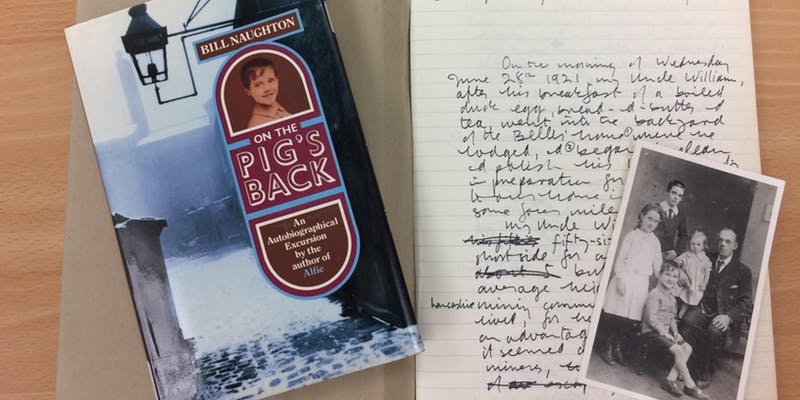 BILL NAUGHTON
ON THE
PIG'S
BACK
An
Autobiographical
Excursion
by the
author of
Alfie
On the morning of Wednesday
June 28th 1921, my Uncle William,
after his breakfast of a boiled
duck egg, bread-d-butter d
tea, went into the backyard
of the Bells' home where he
lodged, d began clean
d polish his
in preparation for
to our home in
some four miles
my Uncle Wi
fifty-si
short side for a
about 5 bu
average hei
Lancashire mining commun
lived, for he
an advantag
it seemed
miners,
of